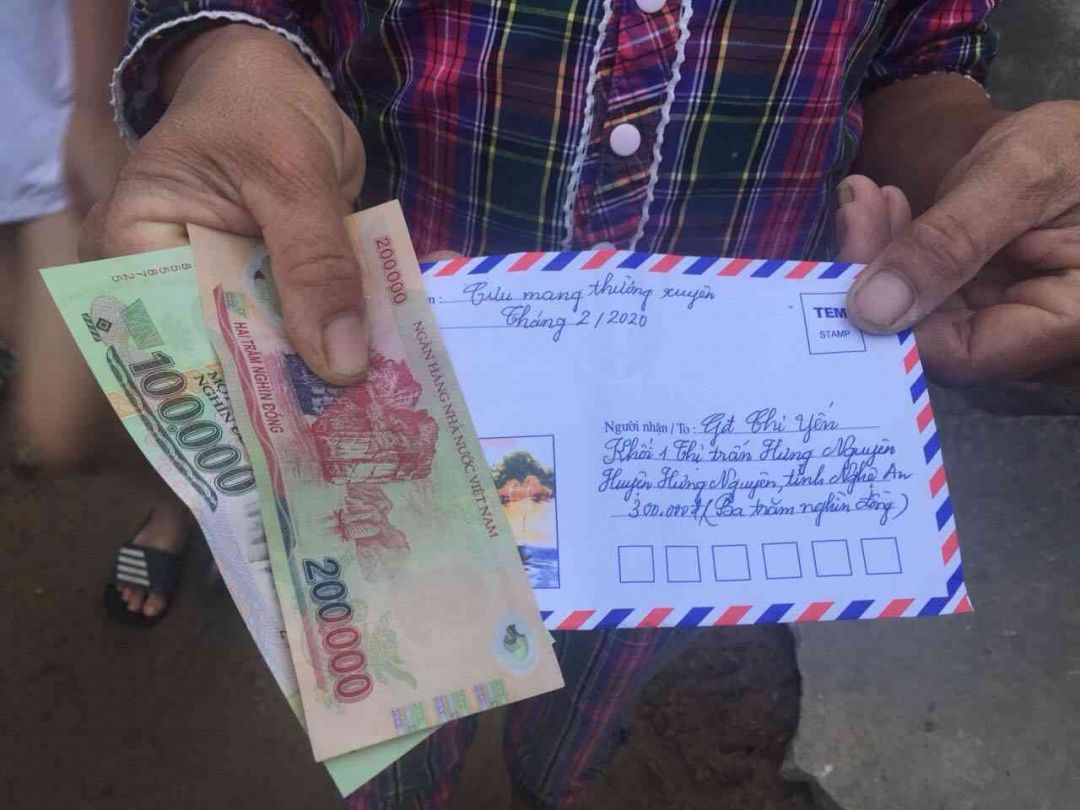 Cưu mang thường xuyên
Tháng 2/2020
TEM
STAMP
Người nhận / To : Gđ Chị Yến
Khối 1 Thị trấn Hưng Nguyên
Huyện Hưng Nguyên, tỉnh Nghệ An
300.000đ (Ba trăm nghìn đồng)
100.000
200.000
HAI TRĂM NGHÌN ĐỒNG
NGÂN HÀNG NHÀ NƯỚC VIỆT NAM
200.000